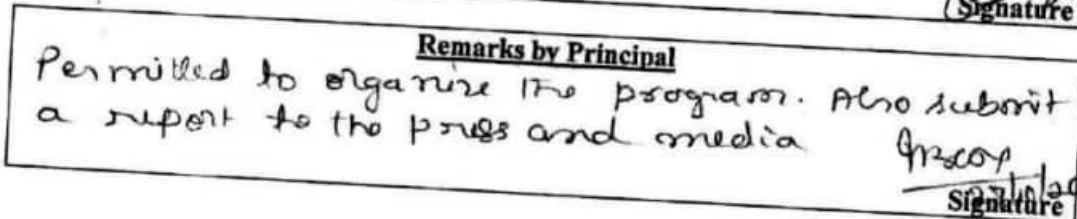 Signature
Remarks by Principal
Permitted to organize the program. Also submit
a report to the press and media
Signature